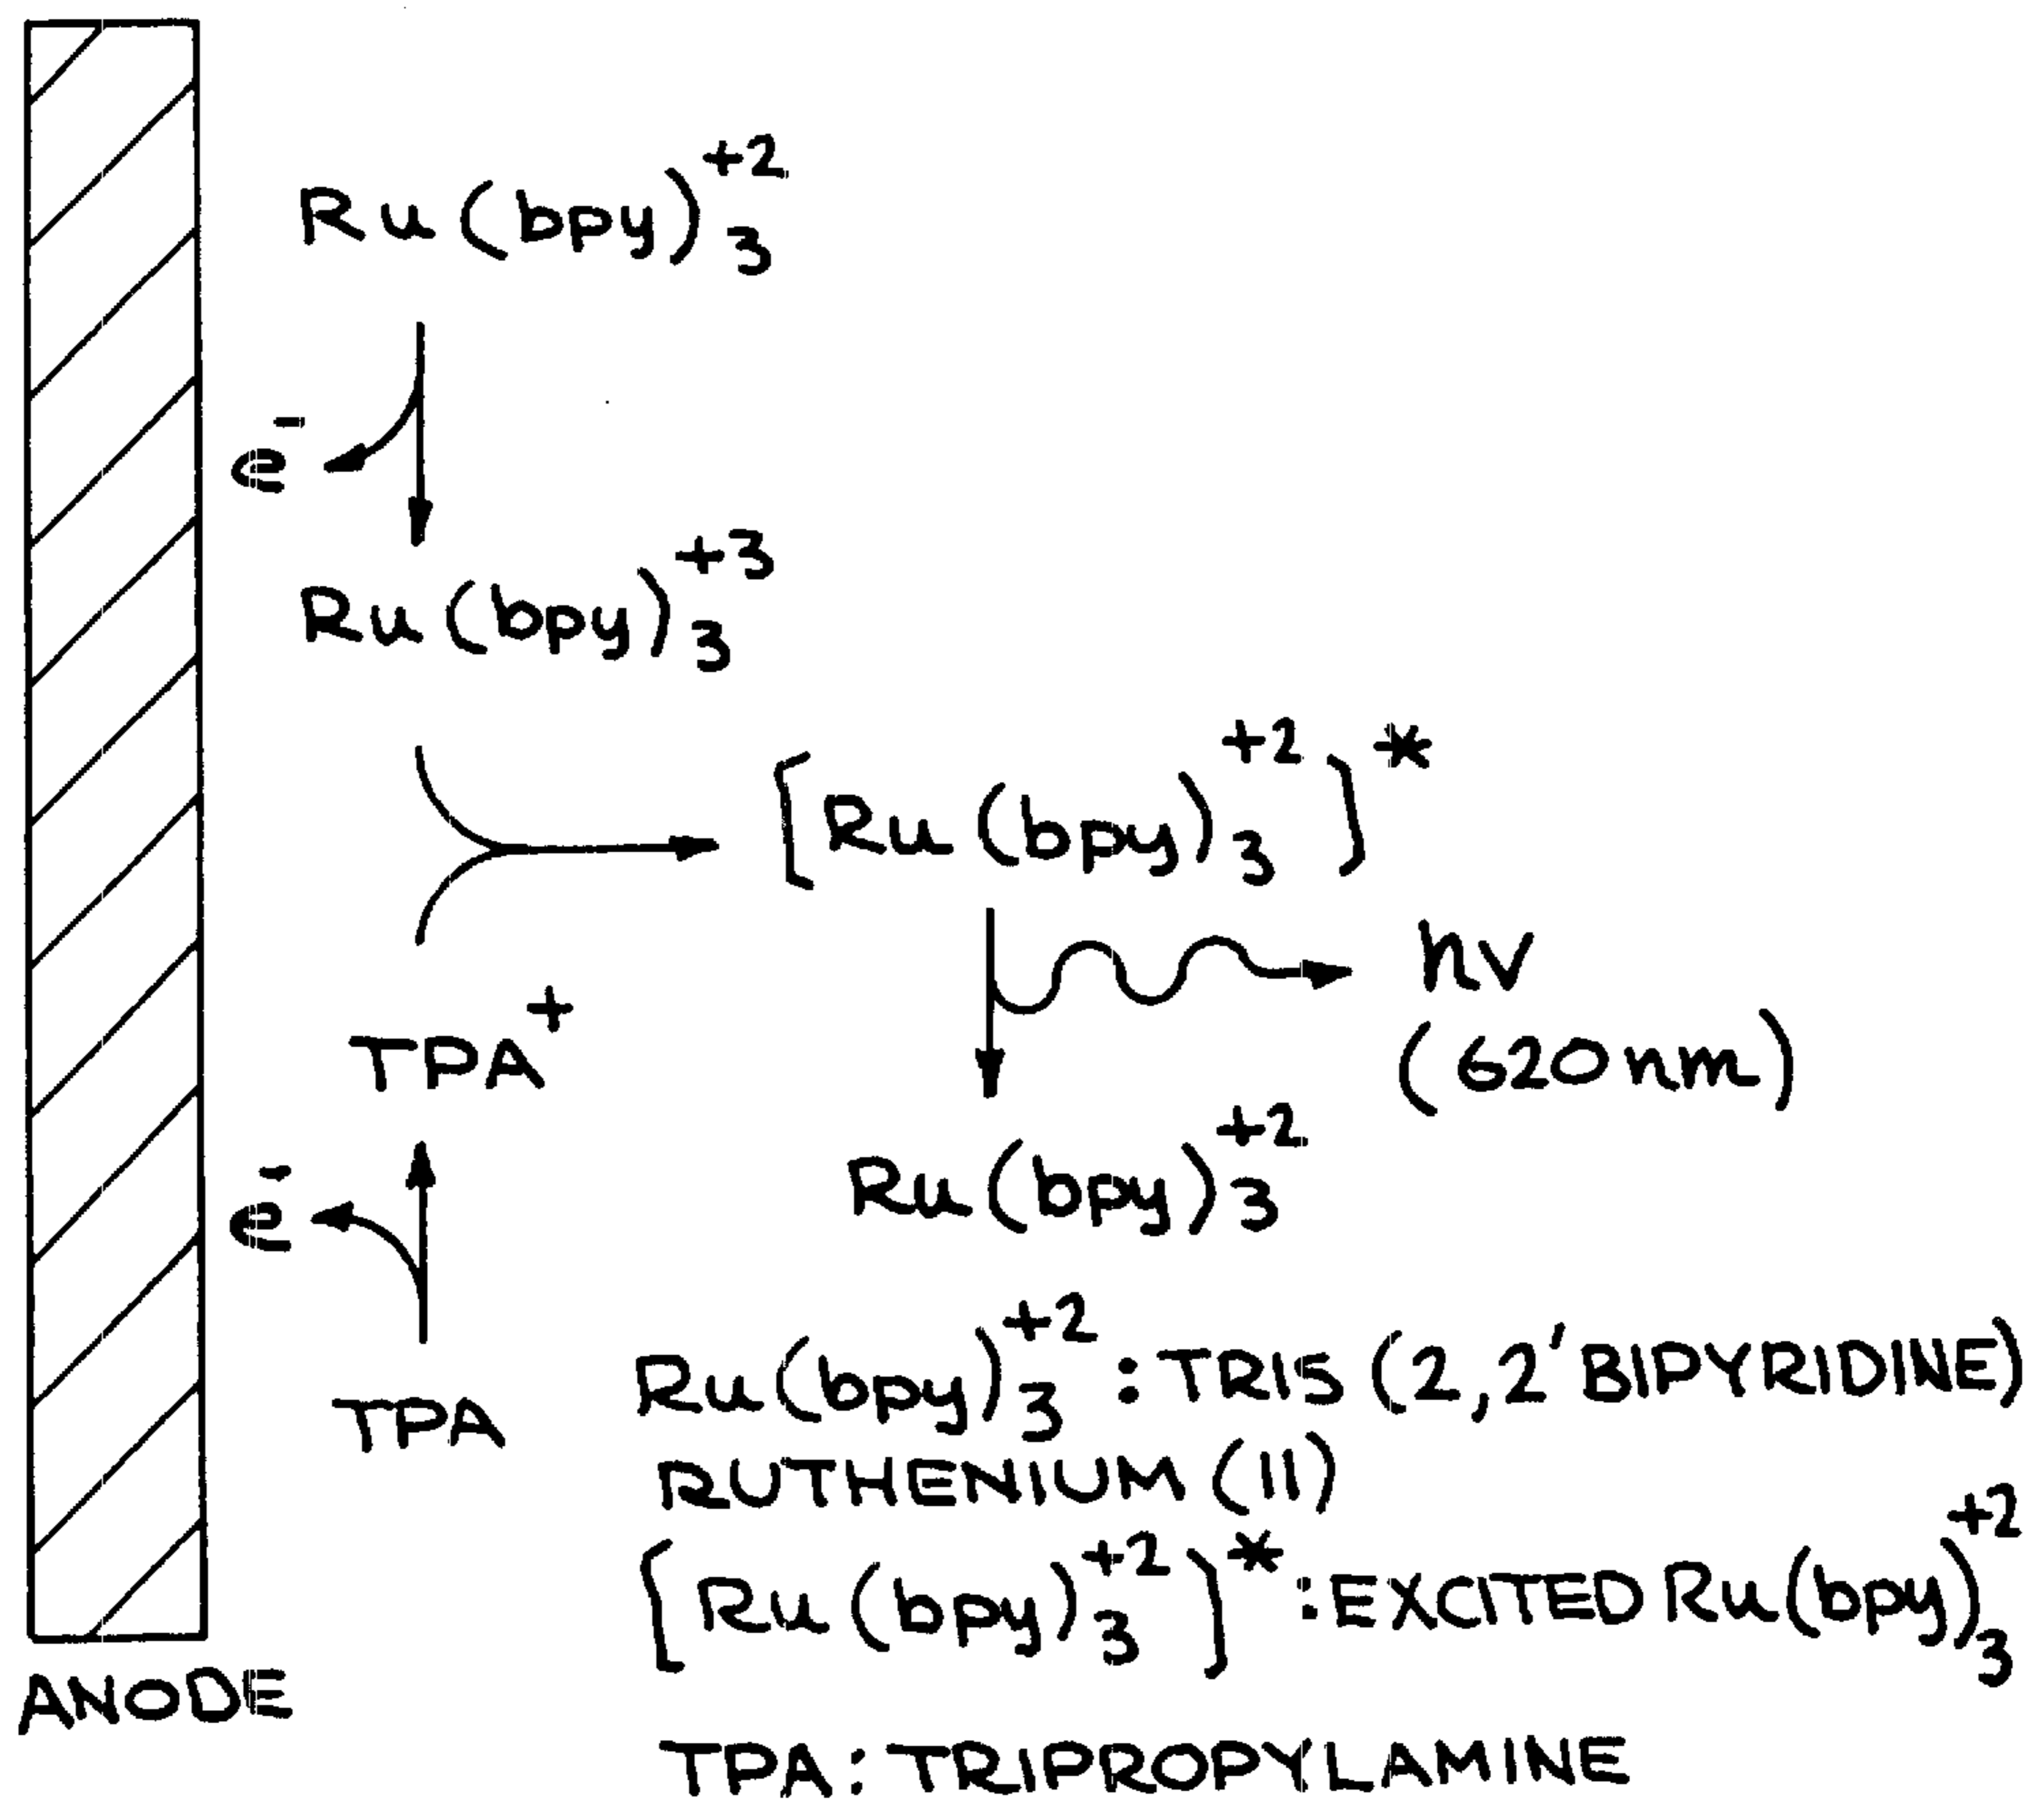 Ru(bpy)₃⁺²
e⁻
Ru(bpy)₃⁺³
[Ru(bpy)₃⁺²]*
hν
(620nm)
TPA⁺
Ru(bpy)₃⁺²
e⁻
TPA
Ru(bpy)₃⁺² : TRIS (2,2'BIPYRIDINE)
RUTHENIUM (II)
[Ru(bpy)₃⁺²]* : EXCITED Ru(bpy)₃⁺²
ANODE
TPA : TRIPROPYLAMINE